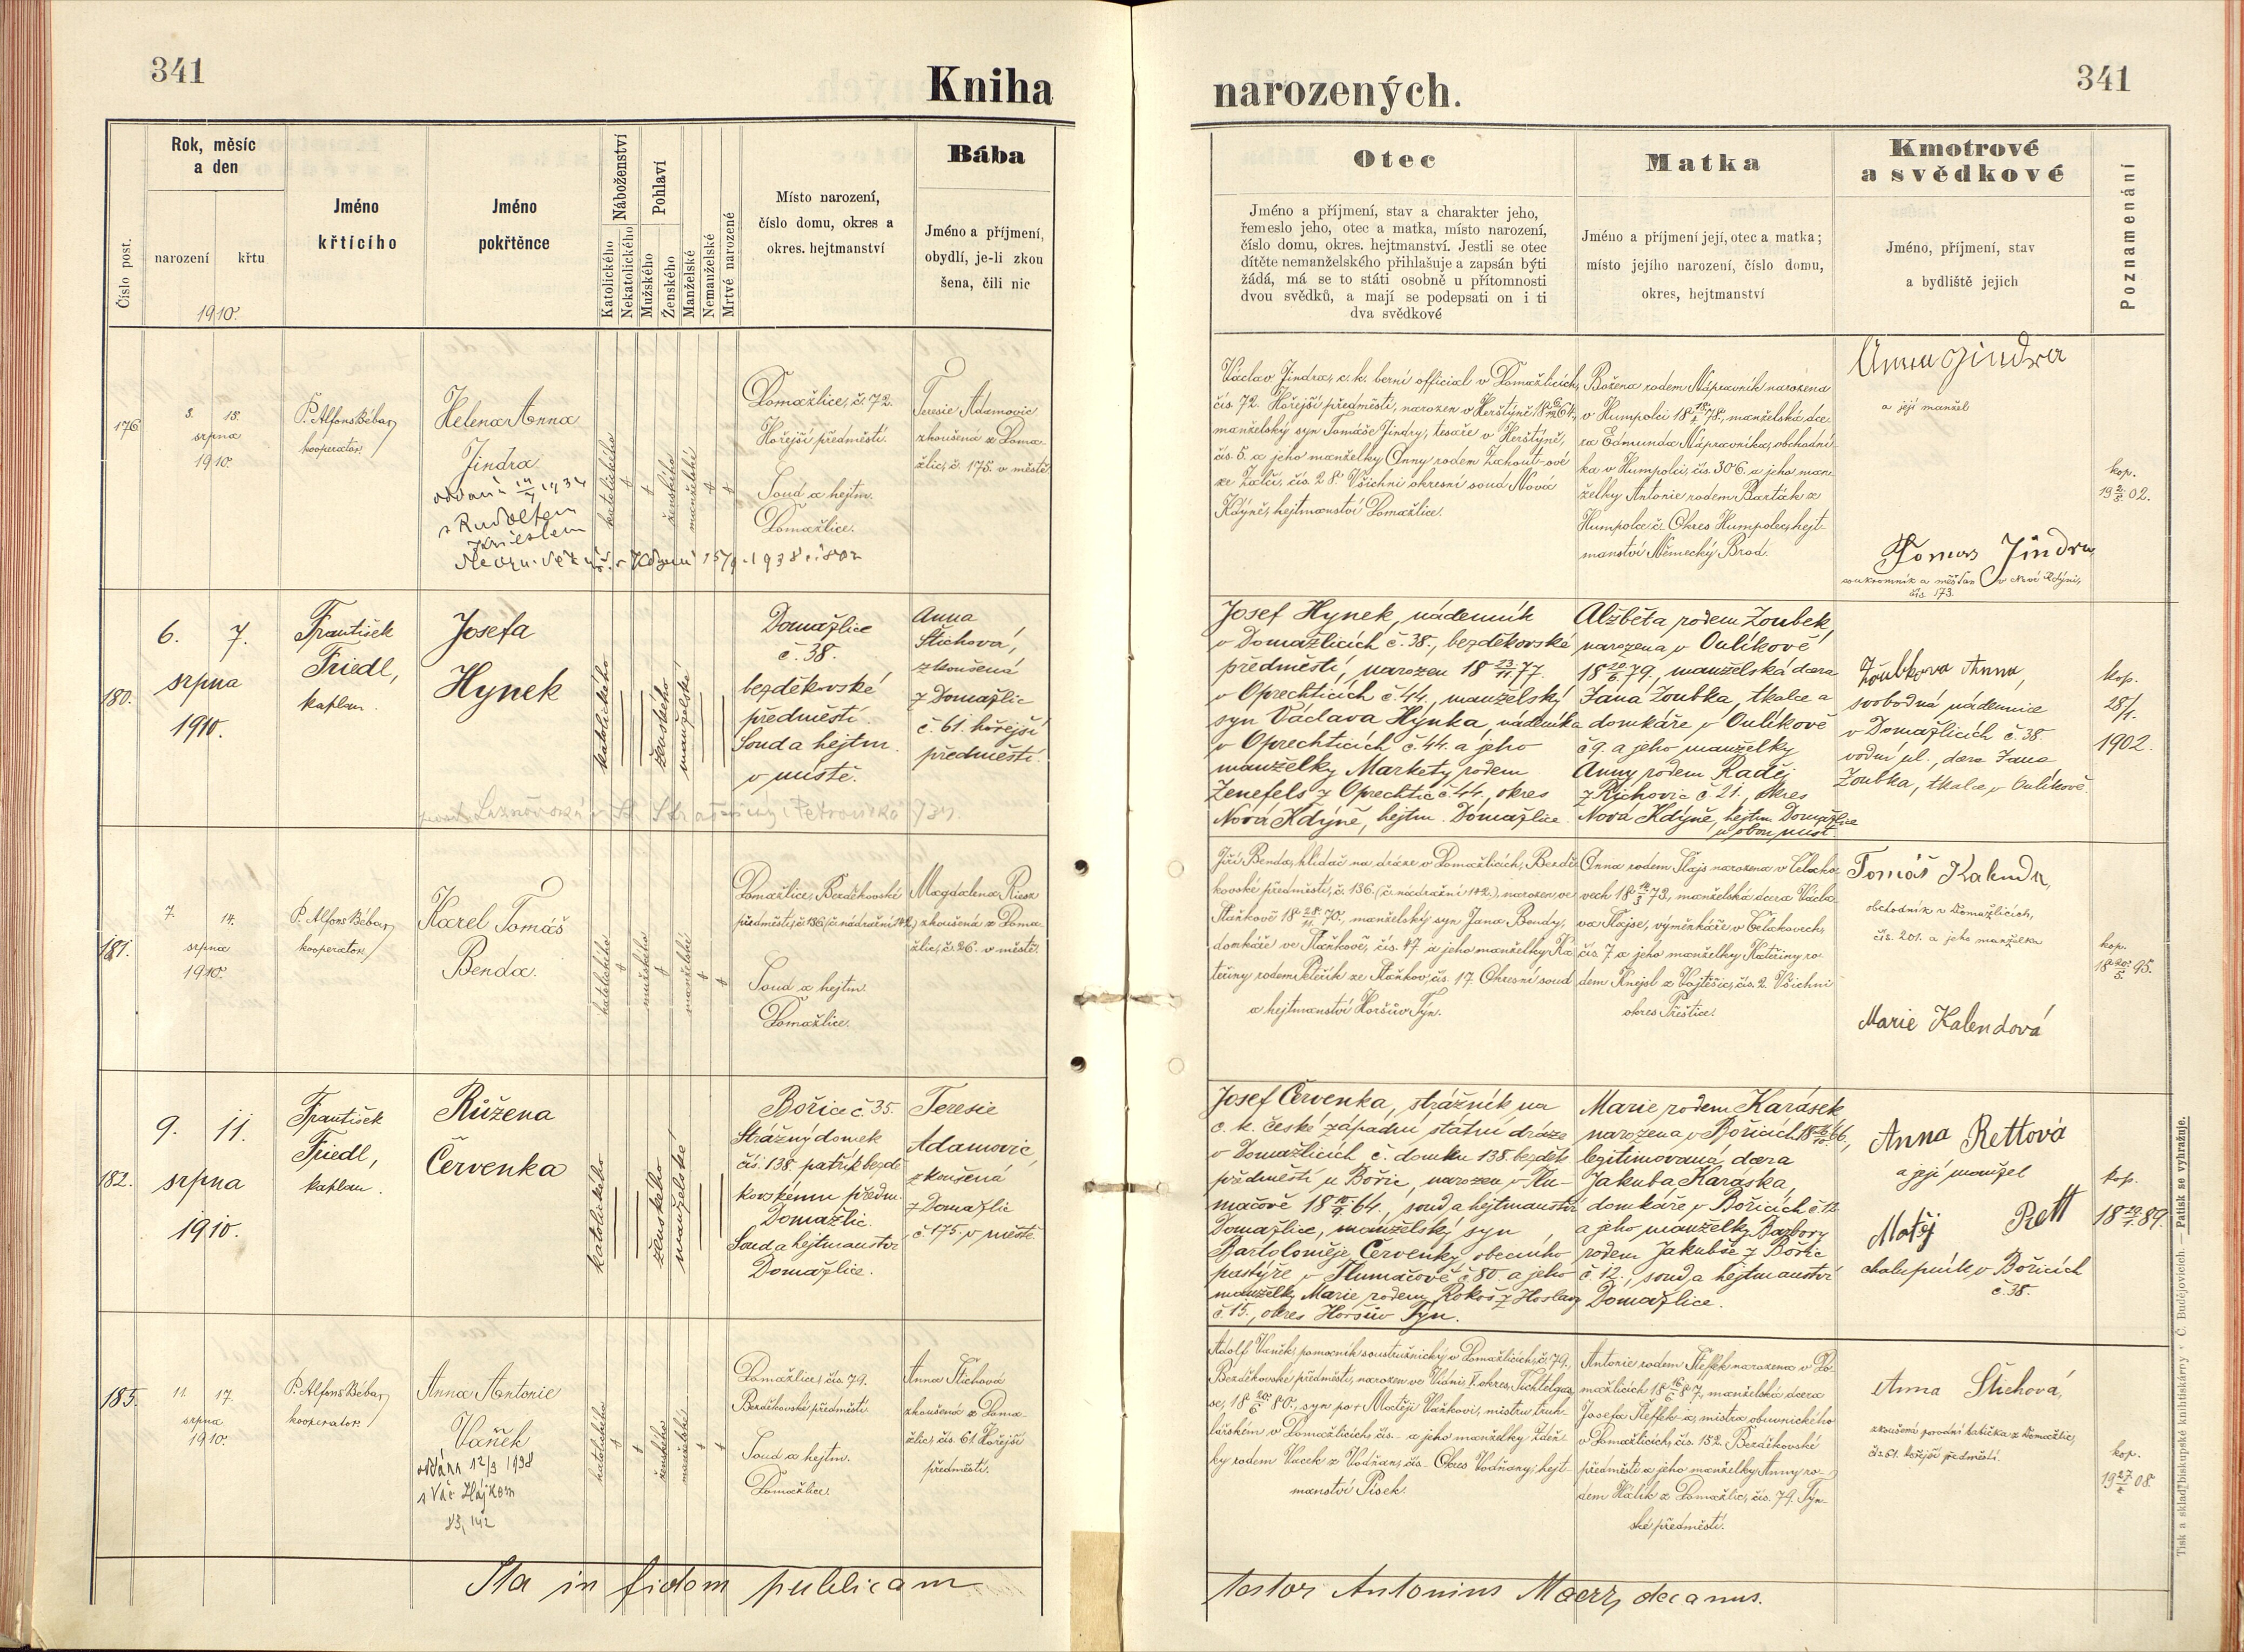 341
Kniha
narozených.
341
Číslo post.
Rok, měsíc
a den
narození
křtu
1910.
Jméno
křtícího
Jméno
pokřtěnce
Náboženství
Katolického
Nekatolického
Pohlaví
Mužského
Ženského
Manželské
Nemanželské
Mrtvé narozené
Místo narození,
číslo domu, okres a
okres. hejtmanství
Bába
Jméno a příjmení,
obydlí, je-li zkou
šena, čili nic
Otec
Jméno a příjmení, stav a charakter jeho,
řemeslo jeho, otec a matka, místo narození,
číslo domu, okres. hejtmanství. Jestli se otec
dítěte nemanželského přihlašuje a zapsán býti
žádá, má se to státi osobně u přítomnosti
dvou svědků, a mají se podepsati on i ti
dva svědkové
Matka
Jméno a příjmení její, otec a matka;
místo jejího narození, číslo domu,
okres, hejtmanství
Kmotrové
a svědkové
Jméno, příjmení, stav
a bydliště jejich
Poznamenání
176.
3. 15.
srpna
1910.
P. Alfons Bébar,
kooperator.
Helena Anna
Jindra
oddaná 14/7 1934
s Rudolfem
katolického
ženského
manželské
Domažlice, č. 72.
Hořejší předměstí.
Soud a hejtm.
Domažlice.
Teresie Adamovic
zkoušená z Doma-
žlic, č. 175. v městě
Václav Jindra, c. k. berní official v Domažlicích,
čís. 72. Hořejší předměstí, narozen v Herštýně 64.,
manželský syn Tomáše Jindry, tesaře v Herštýně,
čís. 5. a jeho manželky Anny rodem Zahout-ové
ze Zálčí, čís. 28. Všichni okresní soud Nová
Kdýně, hejtmanství Domažlice.
Božena rodem Nápravník narozena
v Humpolci 78., manželská dce-
ra Edmunda Nápravníka, obchodní-
ka v Humpolci, čís. 306. a jeho man-
želky Antonie rodem Barták z
Humpolce č. Okres Humpolec, hejt-
manství Německý Brod.
Anna Jindra
a její manžel
Tomas Jindra
soukromník a měšťan v Nové Kdýni,
čís. 173.
kop.
19 2/5 02.
180.
6. 7.
srpna
1910.
František
Friedl,
kaplan.
Josefa
Hynek
katolického
ženského
manželské
Domažlice
č. 38.
bezděkovské
předměstí.
Soud a hejtm.
v místě.
Anna
Štichová,
zkoušená
z Domažlic
č. 61. hořejší
předměstí.
Josef Hynek, nádenník
v Domažlicích č. 38., bezděkovské
předměstí, narozen 18 23/11 77.
v Oprechticích č. 44., manželský
syn Václava Hynka, nádeníka
v Oprechticích č. 44. a jeho
manželky Markety rodem
Zenefels z Oprechtic č. 44., okres
Nová Kdýně, hejtm. Domažlice.
Alžběta rodem Zoubek,
narozena v Oulíkově
18 20/6 79., manželská dcera
Jana Zoubka, tkalce a
domkáře v Oulíkově
č. 9. a jeho manželky
Anny rodem Raděj
z Úlichovic č. 21., okres
Nová Kdýně, hejtm. Domažlice
Zoubkova Anna,
svobodná nádennice
v Domažlicích č. 38.
vodní ul., dcera Jana
Zoubka, tkalce v Oulíkově.
kop.
28/1.
1902.
181.
7. 14.
srpna
1910.
P. Alfons Bébar,
kooperator.
Karel Tomáš
Benda.
katolického
mužského
manželské
Domažlice, Bezděkovské
předměstí, č. 136. (č. nádražní 142.)
Soud a hejtm.
Domažlice.
Magdalena Riesz
zkoušená z Doma-
žlic, č. 26. v městě.
Jiří Benda, hlídač na dráze v Domažlicích, Bezdě-
kovské předměstí, č. 136. (č. nádražní 142.), narozen ve
Staňkově 18 28/11 70., manželský syn Jana Bendy,
domkáře ve Staňkově, čís. 17. a jeho manželky Ka-
teřiny rodem Peteřík ze Staňkov, čís. 17. Okresní soud
a hejtmanství Horšův Týn.
Anna rodem Flajs narozena v Čelako-
vech 73., manželská dcera Václa-
va Flajse, výměnkáře v Čelakovech,
čís. 7 a jeho manželky Kateřiny ro-
dem Knejsl z Vojtěšic, čís. 2. Všichni
okres Přeštice.
Tomáš Kalenda,
obchodník v Domažlicích,
čís. 201. a jeho manželka
Marie Kalendová
kop.
18 20/5 95.
182.
9. 11.
srpna
1910.
František
Friedl,
kaplan.
Růžena
Červenka
katolického
ženského
manželské
Bořice č. 35.
Strážný domek
čís. 138. patřík bezdě-
kovskému předm.
Domažlic.
Soud a hejtmanství
Domažlice.
Teresie
Adamovic,
zkoušená
z Domažlic
č. 175. v městě.
Josef Červenka, strážník na
c. k. české západní státní dráze
v Domažlicích č. domku 138. bezděk.
předměstí u Bořic, narozen v Tlu-
mačově 64., soud a hejtmanství
Domažlice, manželský syn
Bartoloměje Červenky, obecního
pastýře v Tlumačově č. 80. a jeho
manželky Marie rodem Rokoš z Hoslav
č. 15., okres Horšův Týn.
Marie rodem Karásek,
narozena v Bořicích 66.,
legitimovaná dcera
Jakuba Karáska,
domkáře v Bořicích č. 12.
a jeho manželky Barbory
rodem Jakubše z Bořic
č. 12., soud a hejtmanství
Domažlice.
Anna Rettová
a její manžel
Matěj Rett
chalupník v Bořicích
č. 38.
kop.
89.
183.
11. 17.
srpna
1910.
P. Alfons Bébar,
kooperator.
Anna Antonie
Vaněk
oddána 12/3 1938
s Vác. Hájkem
katolického
ženského
manželské
Domažlice, čís. 79.
Bezděkovské předměstí.
Soud a hejtm.
Domažlice.
Anna Štichová
zkoušená z Doma-
žlic, čís. 61. Hořejší
předměstí.
Adolf Vaněk, pomocník soustružnický v Domažlicích, č. 79.,
Bezděkovské předměstí, narozen ve Vídni, V. okres, Fichtelgas-
se, 80., syn po † Matěji Vaňkovi, mistru truh-
lářském v Domažlicích, čís. – a jeho manželky Zdeň-
ky rodem Vacek z Vodňan, čís. – Okres Vodňany; hejt-
manství Písek.
Antonie rodem Šteffek narozena v Do-
mažlicích 18 16/6 87., manželská dcera
Josefa Šteffek-a, mistra obuvnického
v Domažlicích, čís. 152. Bezděkovské
předměstí a jeho manželky Anny ro-
dem Hálík z Domažlic, čís. 79. Týn-
ské předměstí.
Anna Štichová,
zkoušená porodní babička z Domažlic,
čís. 61. hořejší předměstí.
kop.
08.
Ita in fidem publicam
testor Antonius Maerz, decanus.
Tisk a sklad biskupské knihtiskárny v Č. Budějovicích. — Patisk se vyhražuje.